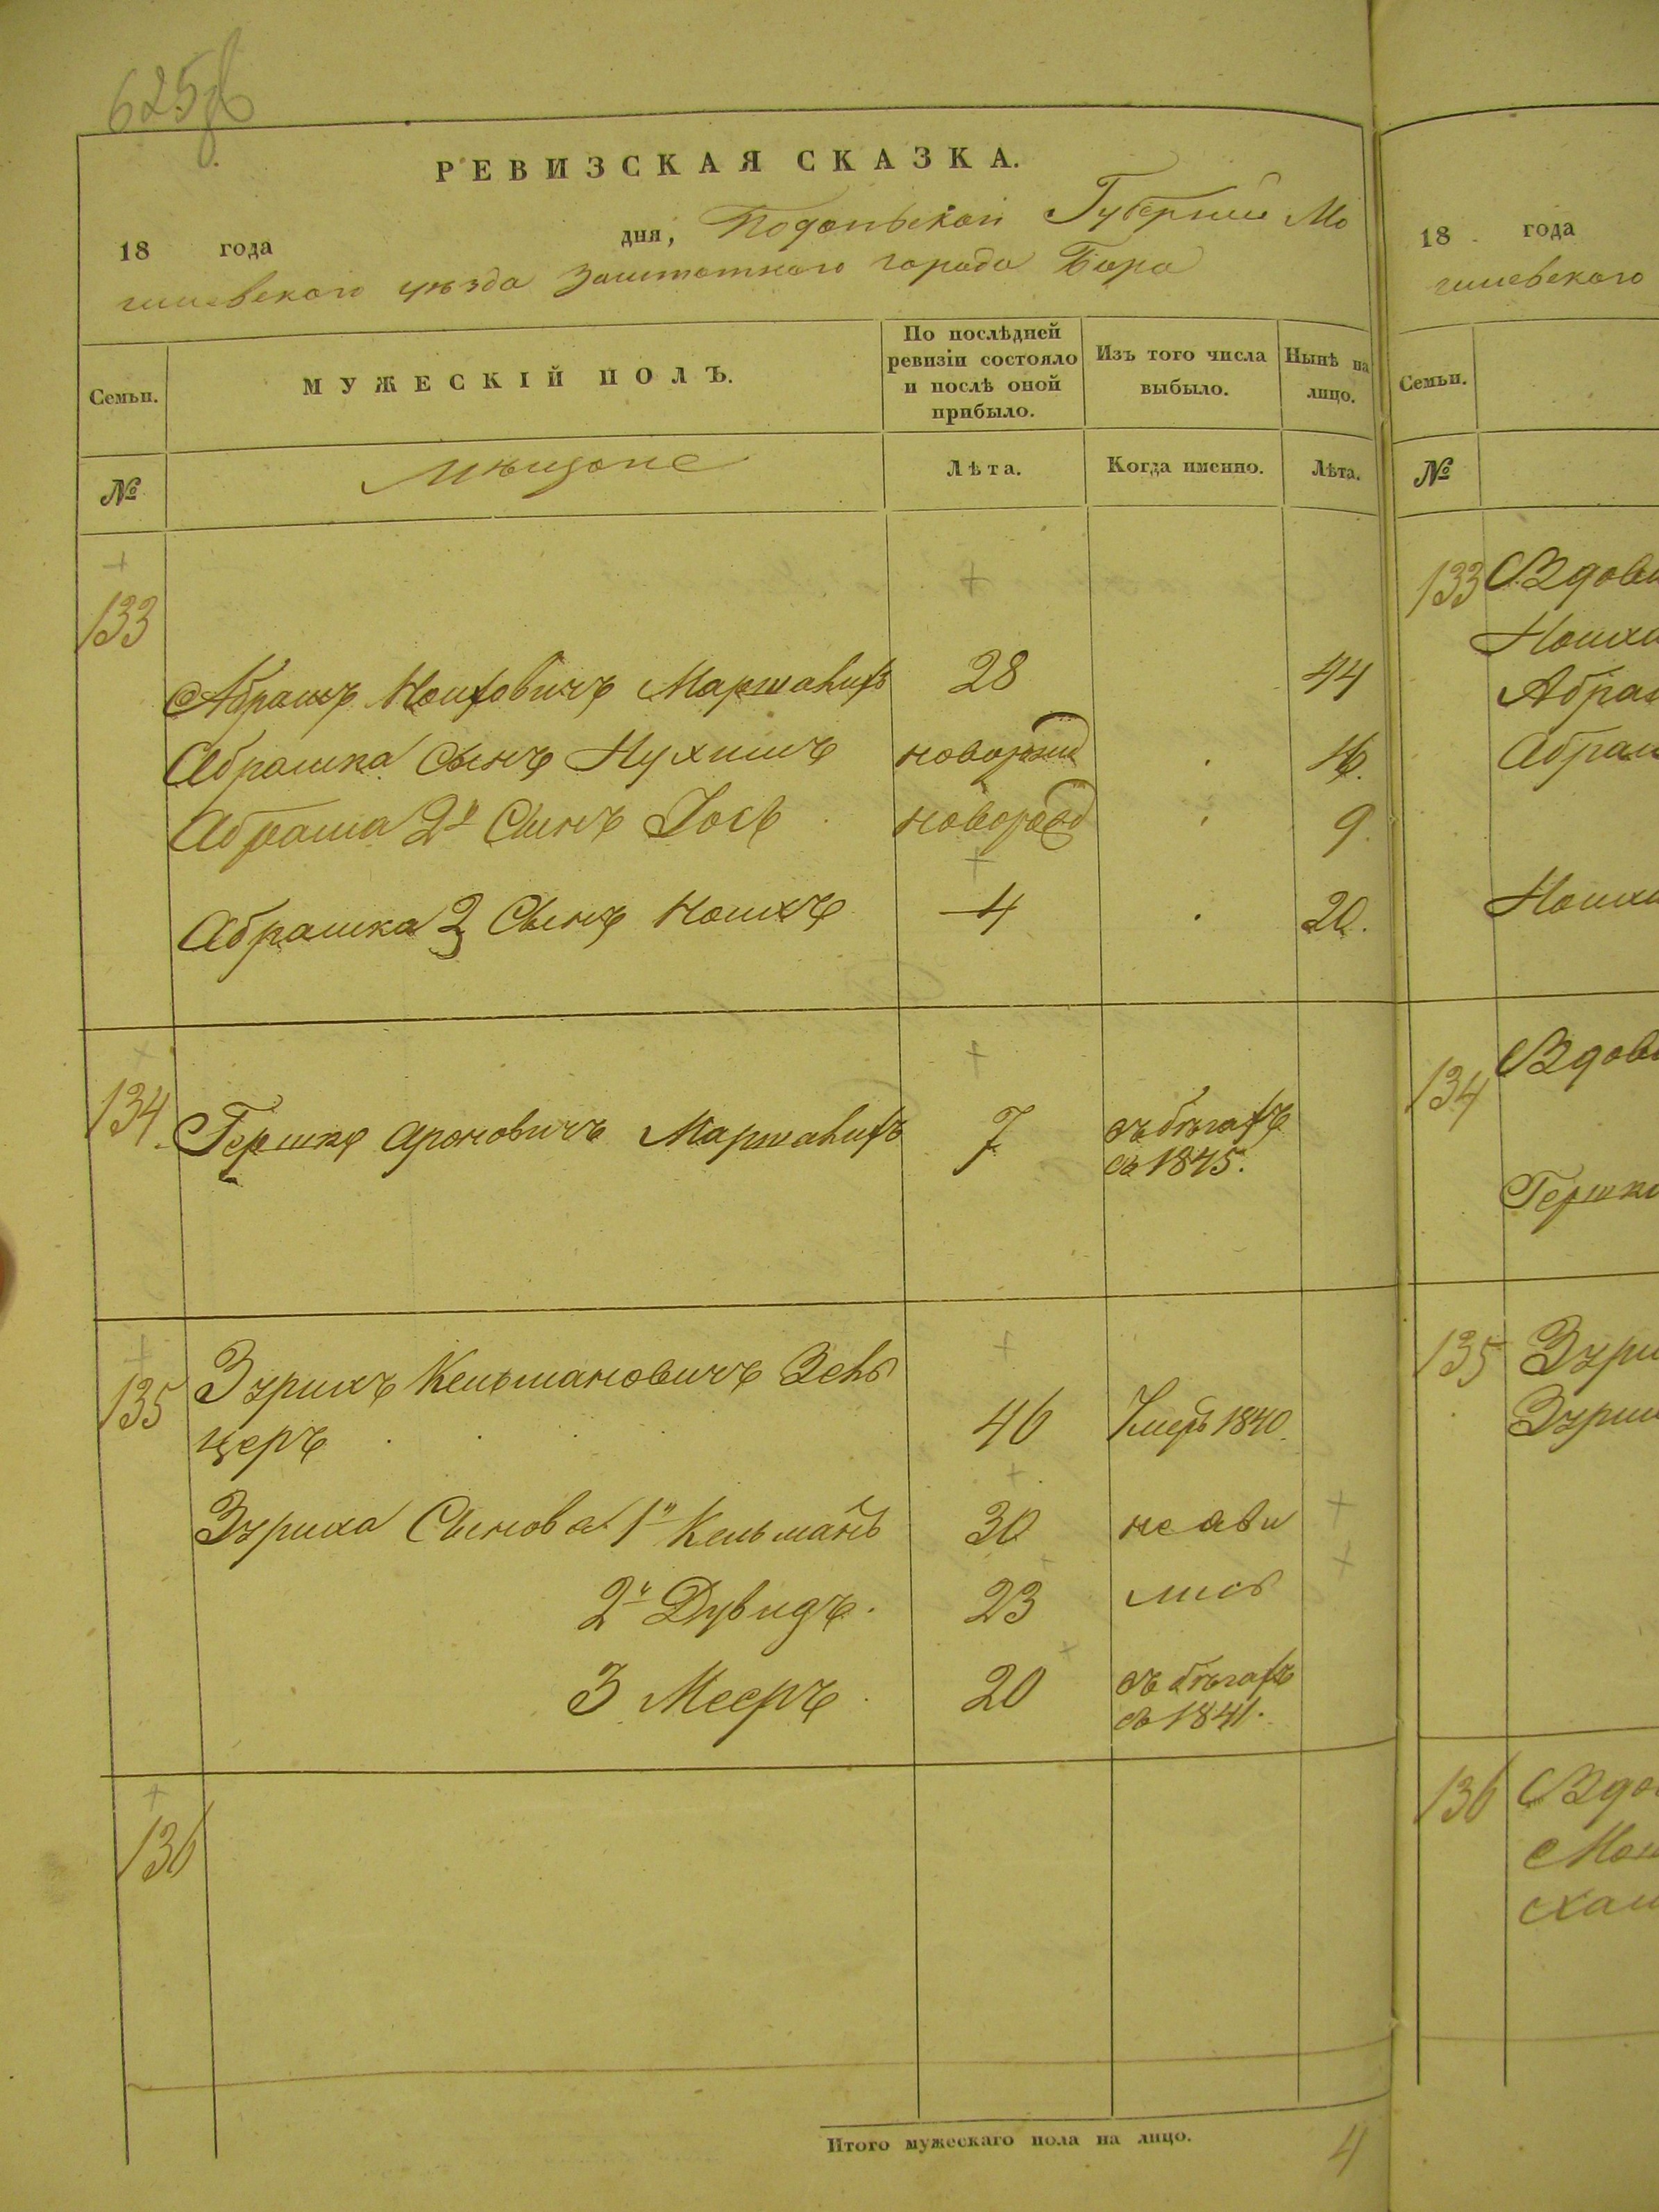 625
РЕВИЗСКАЯ СКАЗКА.
18 года дня, Подольской Губернии Мо
гилевского уѣзда Заштатного города Бара
Семьи.
МУЖЕСКІЙ ПОЛЪ.
По послѣдней ревизіи состояло и послѣ оной прибыло.
Изъ того числа выбыло.
Нынѣ на лицо.
№
Мѣщане
Лѣта.
Когда именно.
Лѣта.
133
Абрамъ Ношховичъ Маргалифъ 28 44
Абрамка Сынъ Нухимъ новорожд 16.
Абрама 2й Сынъ Іось новорожд 9.
Абрамка 3 Сынъ Ношхъ 4 20.
134 Гершко Ароновичъ Маргалифъ 7 въ бѣгахъ
съ 1845.
135 Зурихъ Кельмановичъ Зель
церъ 46 Умеръ 1840.
Зуриха Сыновья 1й Кельманъ 30 не яви
2й Дувидъ. 23 лись
3 Мееръ 20 въ бѣгахъ
съ 1841.
136
Итого мужескаго пола на лицо. 4
18 года
гилевского
Семьи.
№
133 Вдова
Ношх
Абрам
Абрам
Ношх
134 Вдова
Гершк
135 Зури
Зури
136 Вдо